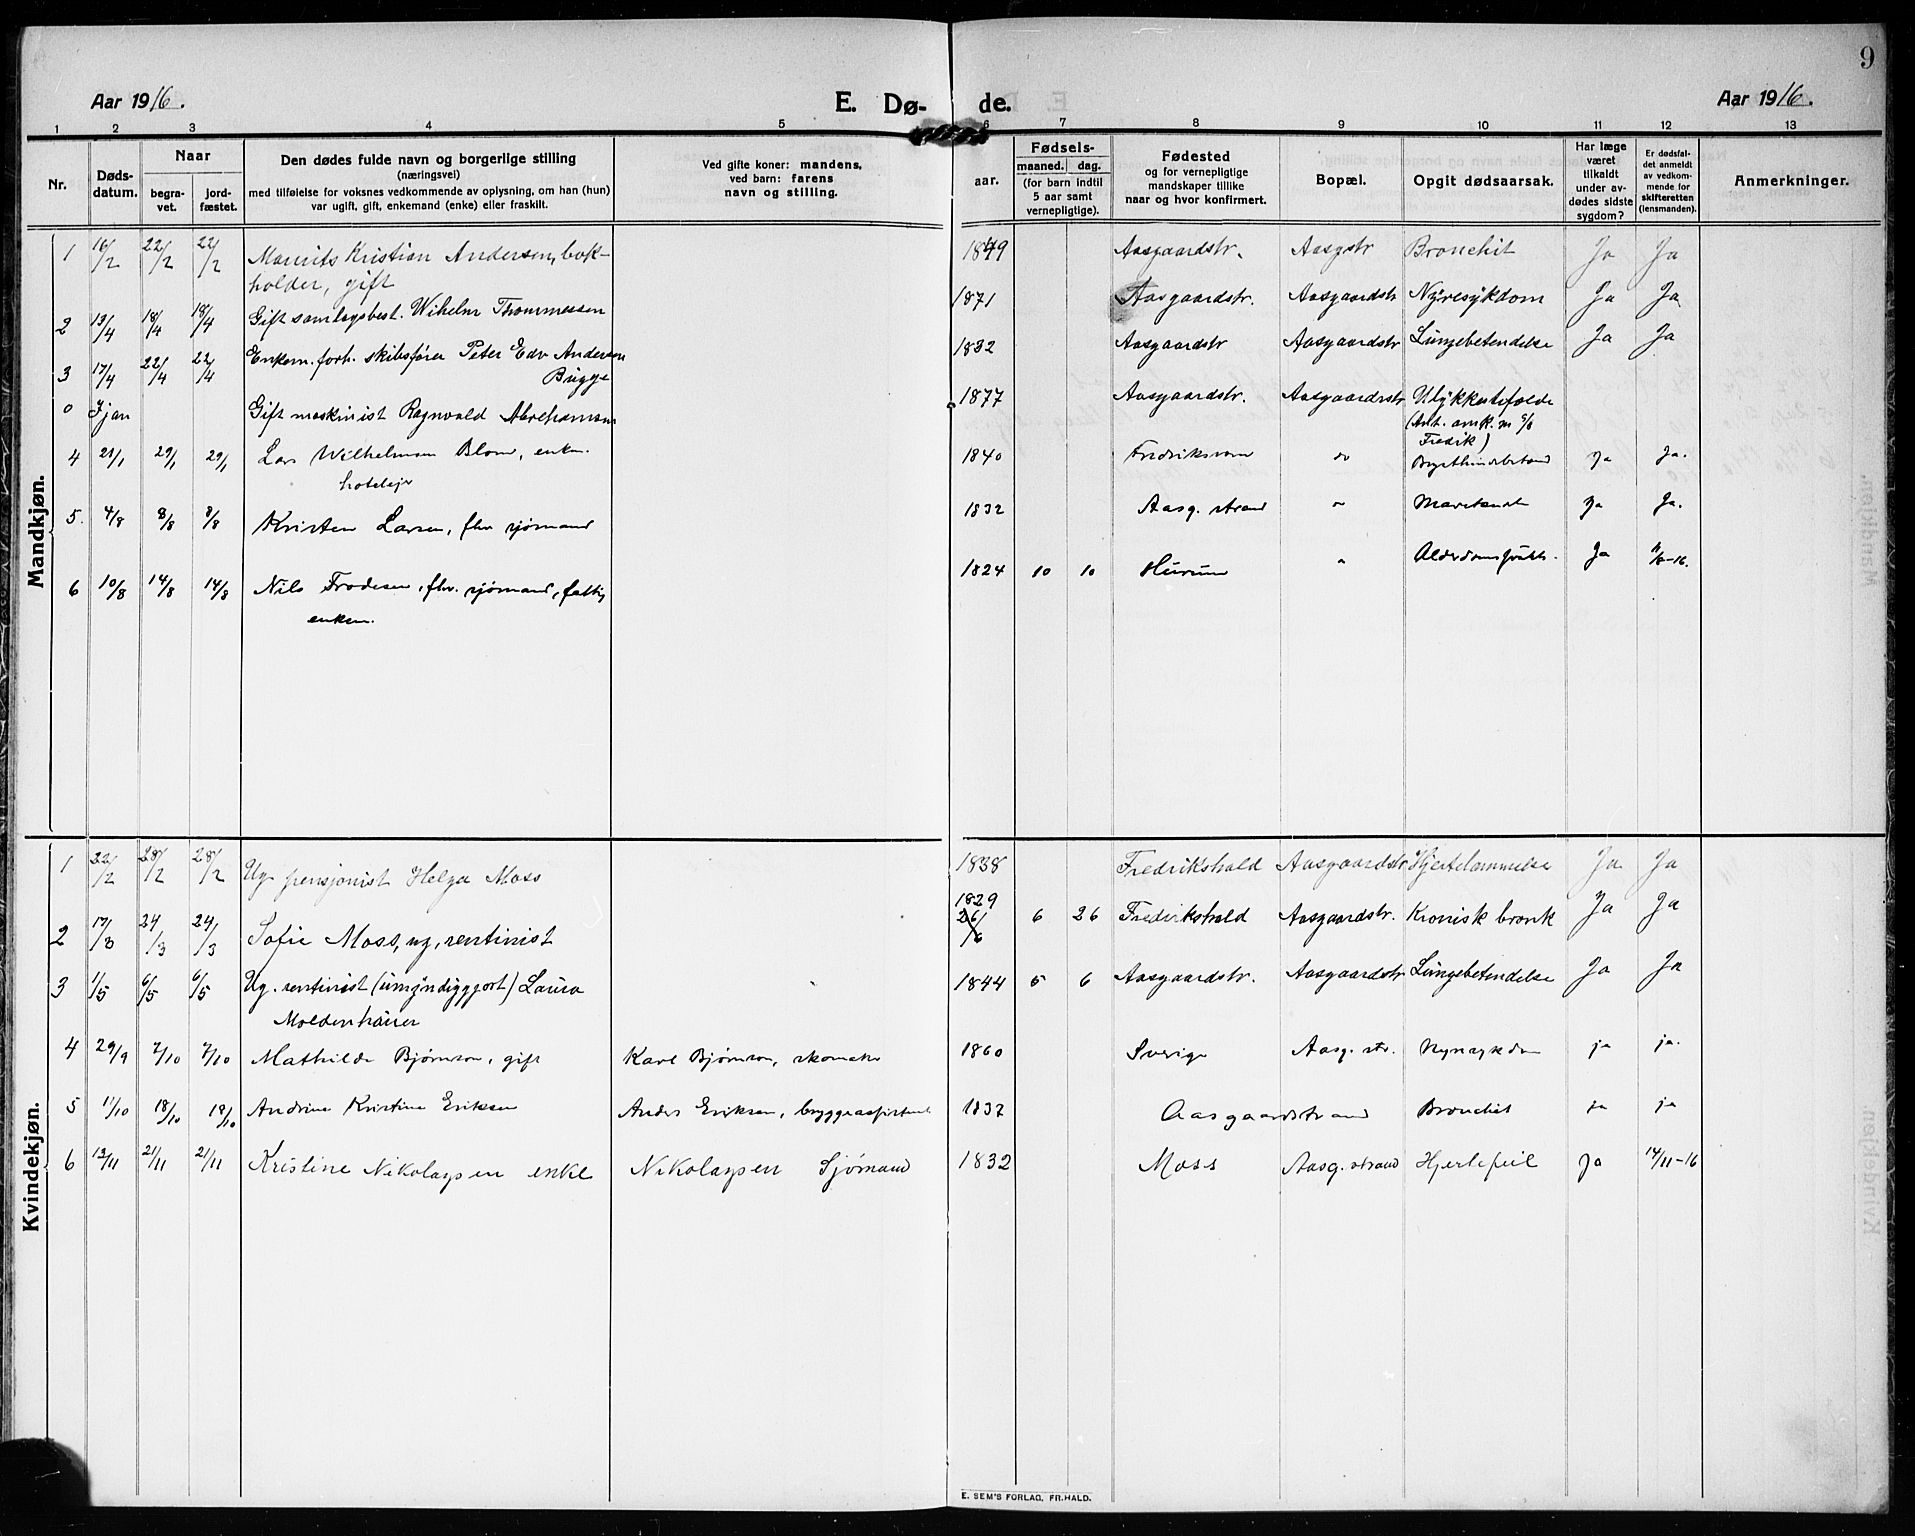 9
Aar 1916.
E. Dø-
de.
Aar 1916.
1 2 3 4 5 6 7 8 9 10 11 12 13
Nr.
Døds-
datum.
Naar
begra-
vet.
jord-
fæstet.
Den dødes fulde navn og borgerlige stilling
(næringsvei)
med tilføielse for voksnes vedkommende av oplysning, om han (hun)
var ugift, gift, enkemand (enke) eller fraskilt.
Ved gifte koner: mandens,
ved barn: farens
navn og stilling.
Fødsels-
aar.
maaned. dag.
(for barn indtil
5 aar samt
vernepligtige).
Fødested
og for vernepligtige
mandskaper tillike
naar og hvor konfirmert.
Bopæl.
Opgit dødsaarsak.
Har læge
været
tilkaldt
under av-
dødes sidste
sygdom?
Er dødsfal-
det anmeldt
av vedkom-
mende for
skifteretten
(lensmanden).
Anmerkninger.
Mandkjøn.
1 16/2 22/2 22/2 Maurits Kristian Andersen, bok-
holder, gift
1849 Aasgaardstr. Aasgstr Bronchit Ja Ja
2 13/4 18/4 18/4 Gift samlagsbest. Wilhelm Thommessen
1871 Aasgaardstr. Aasgaardstr Nyresykdom Ja Ja
3 17/4 22/4 22/4 Enkem. forh. skibsfører Peter Edv Andersen
Bugge
1832 Aasgaardstr Aasgaardstr Lungebetendelse Ja Ja
0 I jan Gift maskinist Ragnvald Abrahamsen
1877 Aasgaardstr. Aasgaardstr Ulykkestifælde
Fredrik)
4 21/1 29/1 29/1 Lars Wilhelmsen Blom, enkm.
hotelejr
1840 Fredriksværn do Ja Ja.
5. 4/8 8/8 8/8 Kristen Larsen, fhv sjømand
1832 Aasg. strand " Ja Ja.
6 10/8 14/8 14/8 Nils Frodesen, fhv. sjømand, fattig
enkem.
1824 10 10 Hurum " Ja 11/8-16.
Kvindekjøn.
1 22/2 28/2 28/2 Ug pensjonist Helga Moss
1838 Fredrikshald Aasgaardstr Hjertelammelse Ja Ja
2 17/3 24/3 24/3 Sofie Moss, ug, rentinist
1829
26/6 6 26 Fredrikshald Aasgaardstr. Kronisk bronk Ja Ja
3 1/5 6/5 6/5 Ug. rentinist (umyndiggjort) Laura
Moldenhauer
1844 5 6 Aasgaardstr. Aasgaardstr Lungebetendelse Ja Ja
4 29/9 7/10 7/10 Mathilde Bjørnson, gift Karl Bjørnson, skomaker
1860 Sverige Aasg. str. Nyresykdom ja ja.
5 11/10 18/10 18/10 Andrine Kristine Eriksen Anders Eriksen,
1837 Aasgaardstrand Bronchit ja ja
6 13/11 21/11 21/11 Kristine Nikolaysen enke Nikolaysen Sjømand
1832 Moss Aasg. strand Hjertefeil Ja 14/11-16
E. SEM'S FORLAG, FR.HALD.